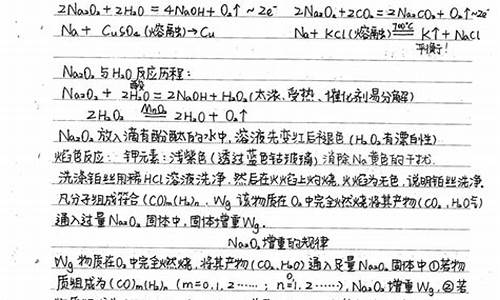 2Na₂O₂ + 2H₂O = 4NaOH + O₂↑ ~ 2e⁻ 2Na₂O₂ + 2CO₂ = 2Na₂CO₃ + O₂↑ ~ 2e⁻
Na + CuSO₄ (熔融) → Cu Na + KCl (熔融) ⇌ K↑ + NaCl
平衡!
Na₂O₂ 与 H₂O 反应历程:
Na₂O₂ + 2H₂O = 2NaOH + H₂O₂ (太浓、受热、催化剂易分解)
2H₂O₂ MnO₂ 2H₂O + O₂↑
Na₂O₂ 放入滴有酚酞的水中, 溶液先变红后褪色 (H₂O₂ 有漂白性)
焰色反应: 钾元素: 浅紫色 (透过蓝色钴玻璃) 消除 Na 黄色的干扰.
洗涤铂丝用稀 HCl 溶液洗净, 然后在火焰上灼烧, 火焰为无色, 说明铂丝洗净.
凡分子组成符合 (CO)m(H₂)n, Wg 该物质在 O₂ 中完全燃烧将其产物 (CO₂, H₂O气)
通入过量 Na₂O₂ 固体中, 固体增重 Wg.
Na₂O₂ 增重的规律
Wg 物质在 O₂ 中完全燃烧, 将其产物 (CO₂, H₂O) 通入足量 Na₂O₂ 固体中 ①若物
质组成为 (CO)m(H₂)n (m=0,1,2……; n=0,1,2……), Na₂O₂ 增重 Wg. ②若